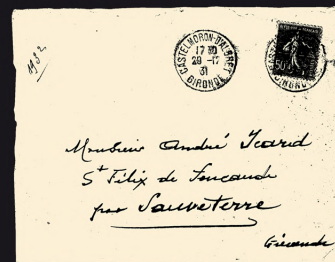 1982
CASTELMORON-D'ALBRET
17 30
29 -11
31
GIRONDE
50
Monsieur André Icard
St Félix de Foncaude
par Sauveterre
Gironde